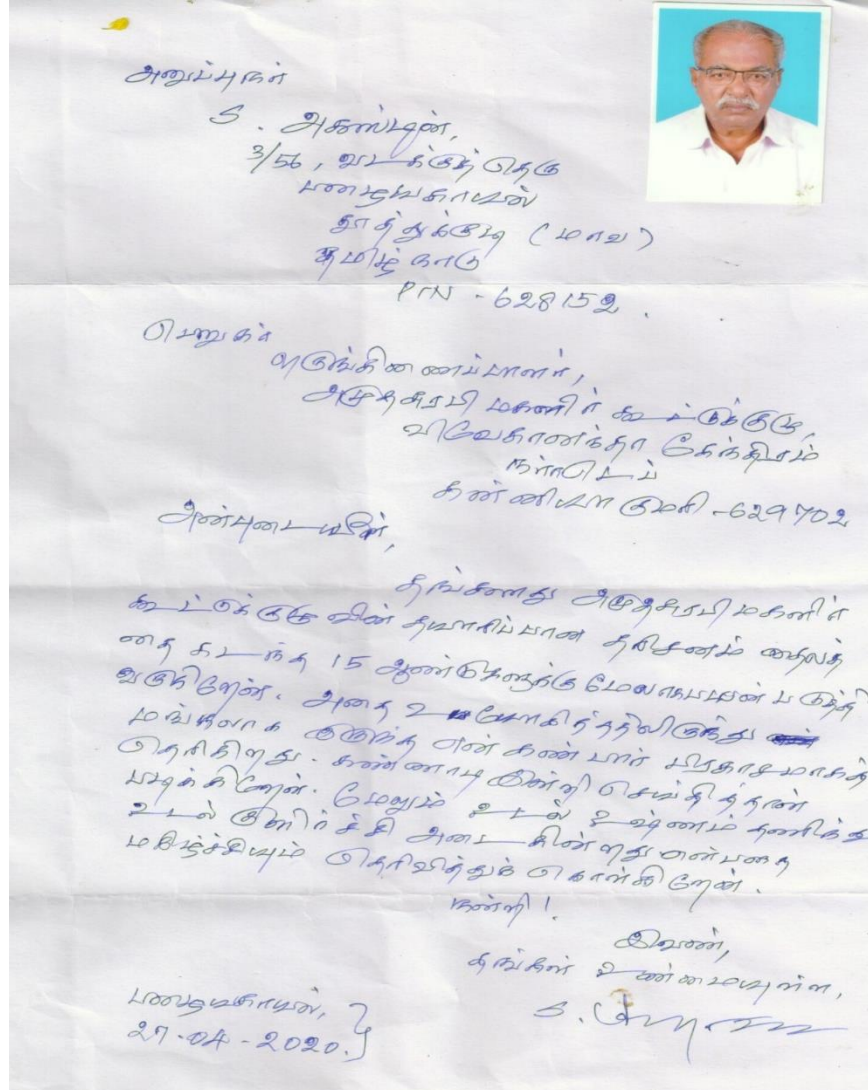 அனுப்புநர்
S. அகஸ்டின்,
3/56, வடக்குத் தெரு
பழையகாயல்
தூத்துக்குடி (மாவ)
தமிழ்நாடு
PIN - 628152.
பெறுநர்
ஒருங்கிணைப்பாளர்,
அமுதசுரபி மகளிர் கூட்டுக்குழு,
விவேகானந்தா கேந்திரம்
கன்னியாகுமரி - 629702
அன்புடையீர்,
தங்களது அமுதசுரபி மகளிர்
கூட்டுக்குழுவின் தயாரிப்பான தரிசனம் தைலத்
தை கடந்த 15 ஆண்டுகளுக்கு மேலாக பயன்படுத்தி
வருகிறேன். அதை உபயோகித்ததிலிருந்து
மங்கலாக இருந்த என் கண் பார் பிரகாசமாகத்
தெரிகிறது. கண்ணாடி இன்றி செய்தித்தாள்
படிக்கிறேன். மேலும் உடல் உஷ்ணம் தணிந்து
உடல் குளிர்ச்சி அடைகின்றது என்பதை
மகிழ்ச்சியும் தெரிவித்துக் கொள்கிறேன்.
நன்றி!
இவண்,
தங்கள் உண்மையுள்ள,
பழையகாயல்,
27-04-2020.
S.